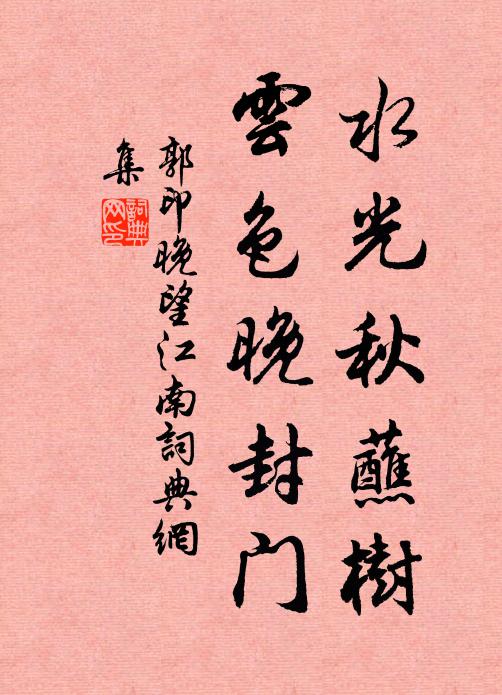 水光秋蘸樹
雲色晚封门
郭印晚望江南詞典網
集
詞典
网印